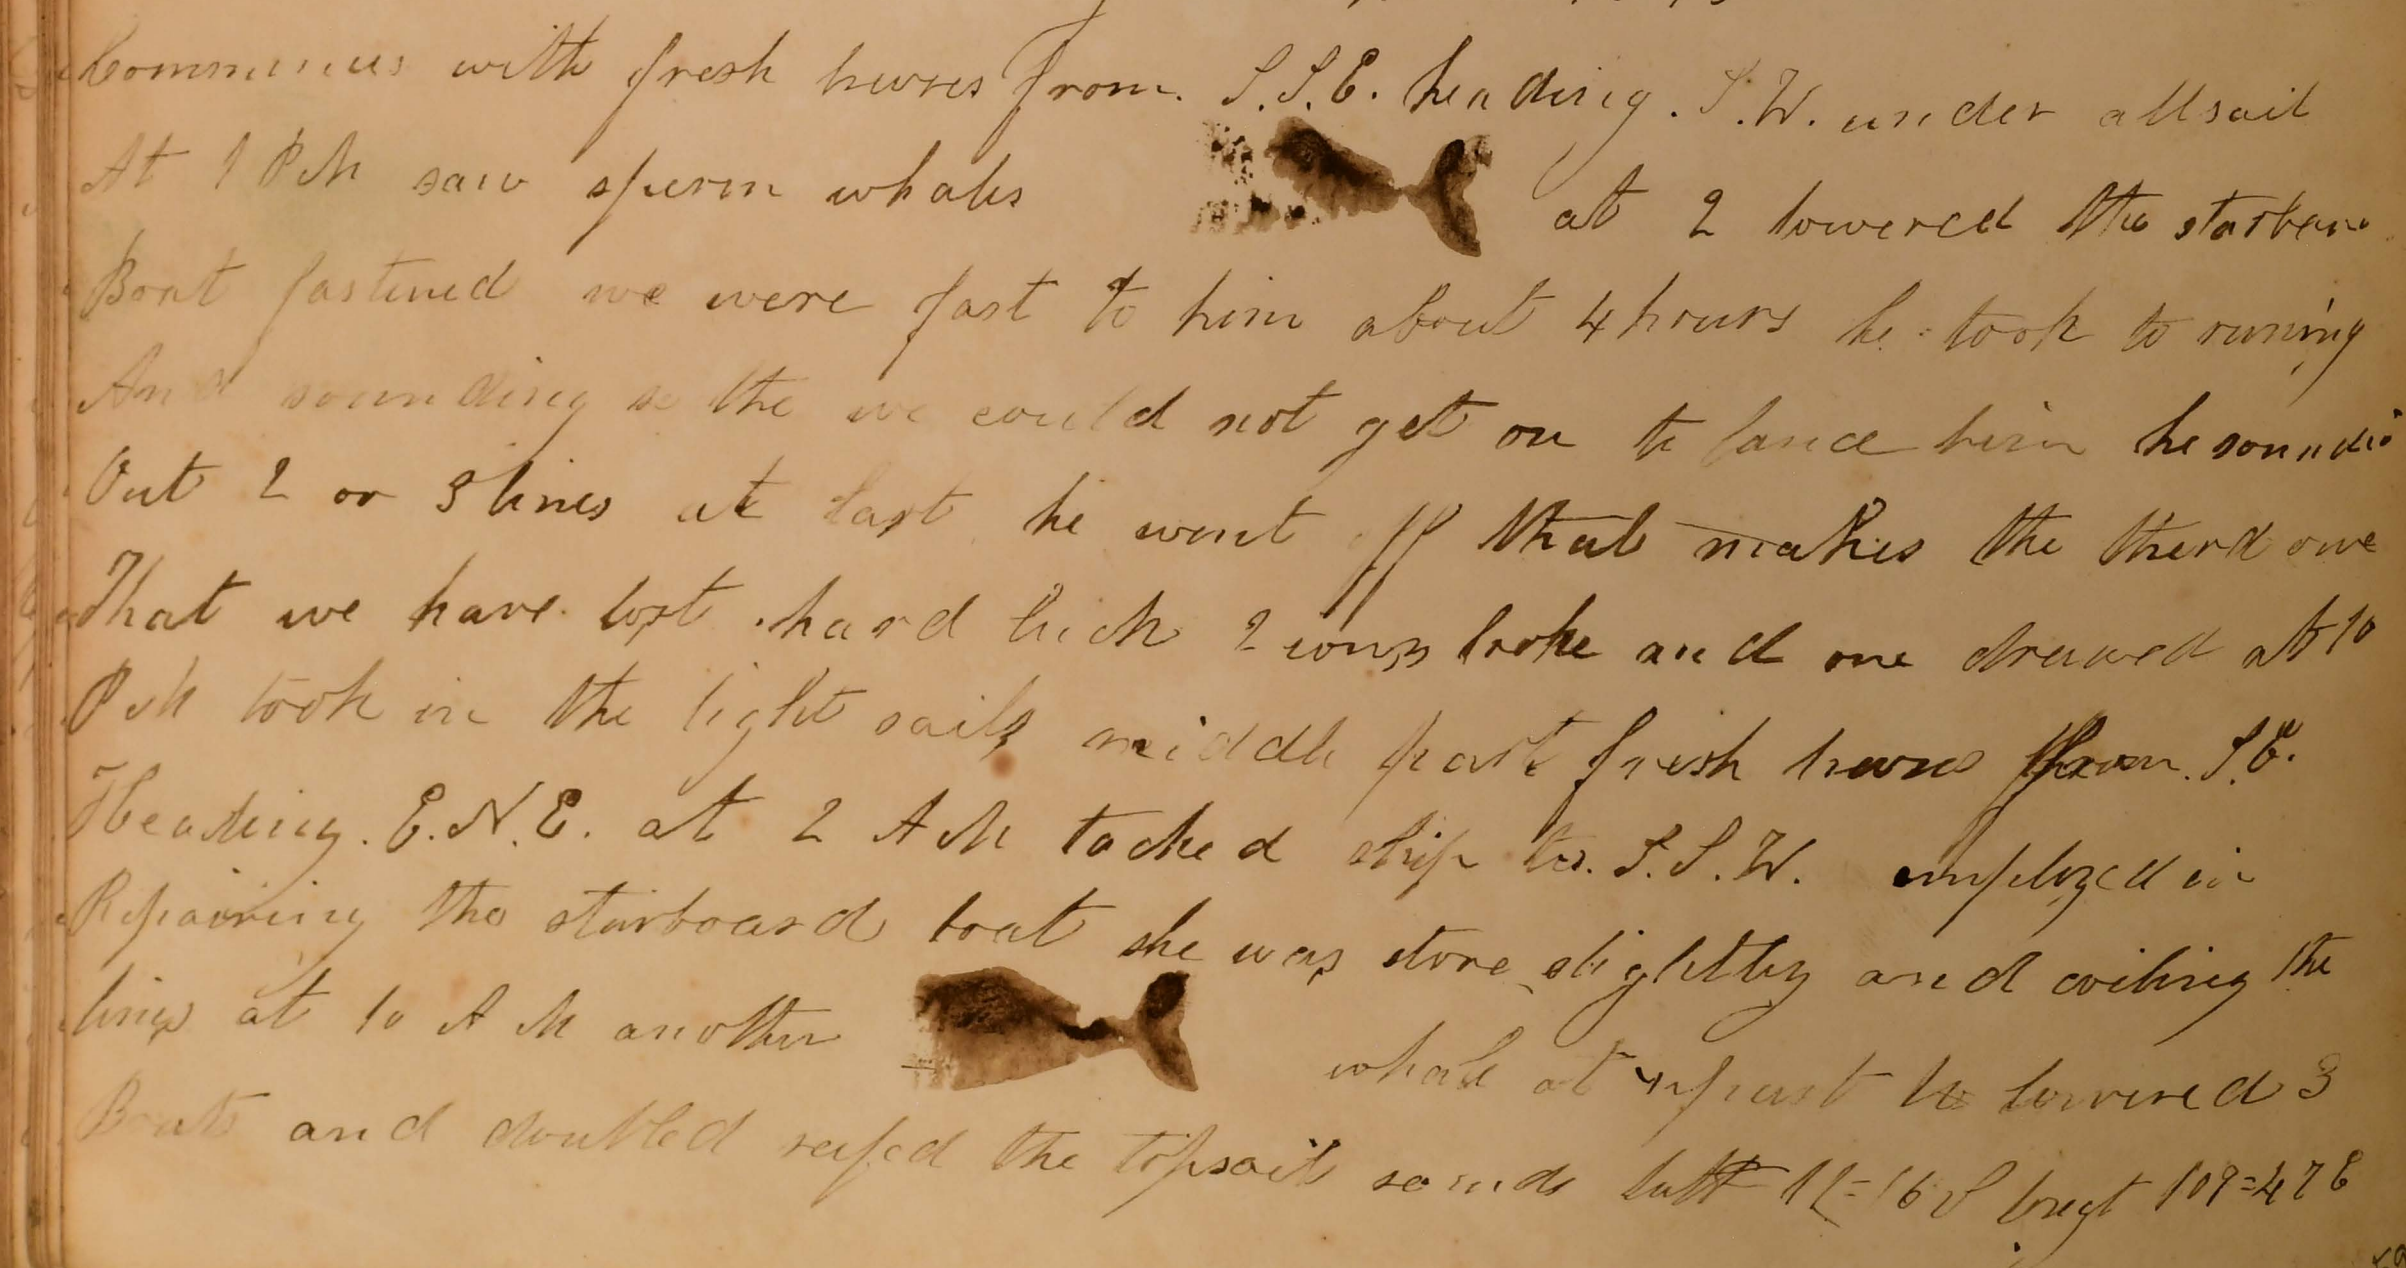 Commences with fresh breeses from. S.S.E. heading. S.W. under all sail
At 1 PM saw sperm whales at 2 lowered the starboard
Boat fastened we were fast to him about 4 hours he took to runing
And sounding so the we could not get on to lance him he sounded
Out 2 or 3 lines at last he went off that makes the therd one
That we have lost hard luck 2 irons broke and one drawed at 10
PM took in the light sails middle part fresh breeses from. S.E.
Heading. E.N.E. at 2 AM tacked ship to. S.S.W. employed in
Repairing the starboard boat she was stove slightly and coiling the
lines at 10 AM another whale at past 10 lowered 3
Boats and doubled reefed the topsails so ends latt 12=16 S longt 109=47 E